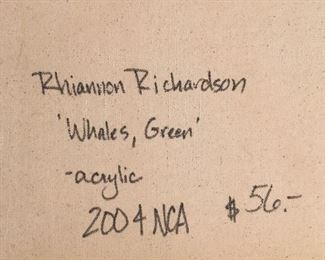 Rhiannon Richardson
'Whales, Green'
-acrylic
2004 NCA $56.-